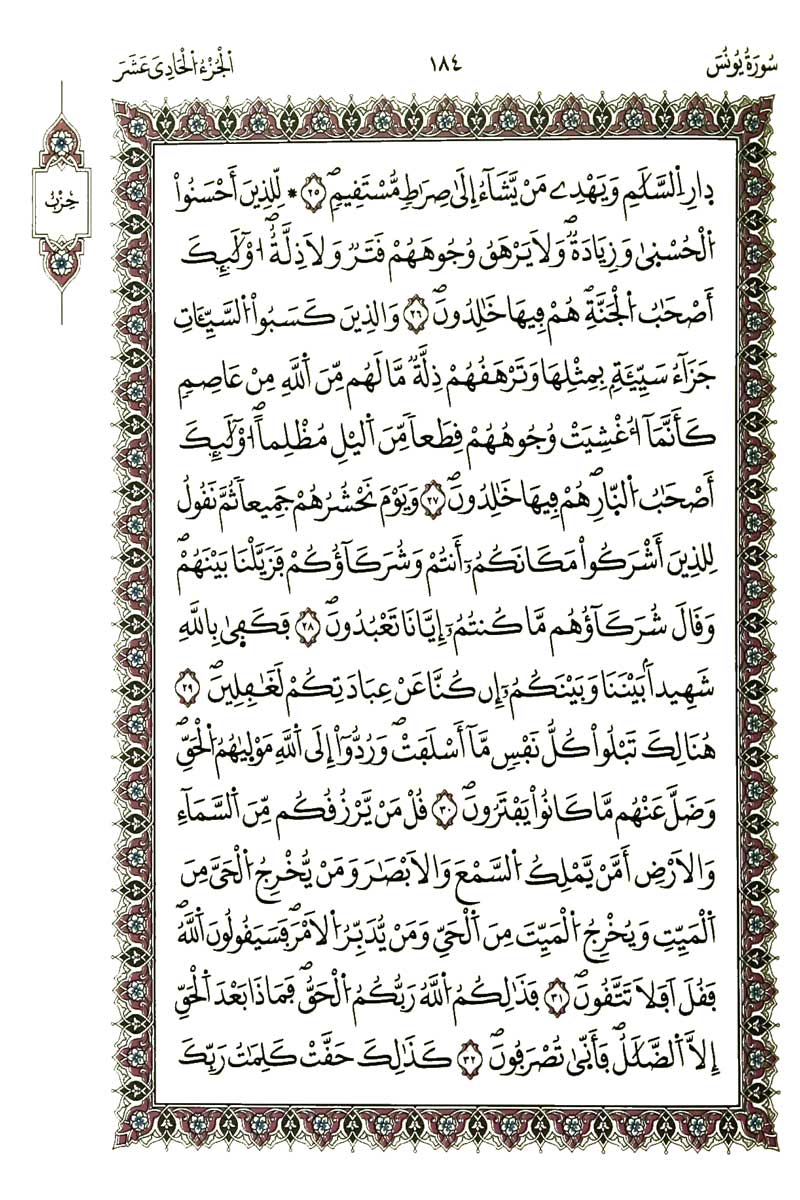 سُورَةُ يُونُسَ
١٨٤
اَلْجُزْءُ اُلْحَادِيَ عَشَرَ
حِزْبٌ
ب۪ارِ اِ۬لسَّلَٰمِ وَيَهْدِے مَنْ يَّشَآءُ إِلَىٰ صِرَٰطٖ مُّسْتَفِيمٖۖ ٢٥ * لِّلذِينَ أَحْسَنُواْ
اُ۬لْحُسْن۪ىٰ وَزِيَادَةٞۖ وَلَا يَرْهَقُ وُجُوهَهُمْ قَتَرٞ وَلَا ذِلَّةٌۖ ا۟وْلَٰٓئِكَ
أَصْحَٰبُ اُ۬لْجَنَّةِۖ هُمْ فِيهَا خَٰلِدُونَۖ ٢٦ وَالذِينَ كَسَبُواْ اُ۬لسَّيِّـَٔاتِ
جَزَآءُ سَيِّئَةِۢ بِمِثْلِهَا وَتَرْهَقُهُمْ ذِلَّةٞۖ مَّا لَهُم مِّنَ اَ۬للَّهِ مِنْ عَاصِمٖ
كَأَنَّمَآ أُغْشِيَتْ وُجُوهُهُمْ قِطَعاٗ مِّنَ اَ۬ليْلِ مُظْلِماًۖ ا۟وْلَٰٓئِكَ
أَصْحَٰبُ اُ۬لنّ۪ارِۖ هُمْ فِيهَا خَٰلِدُونَۖ ٢٧ وَيَوْمَ نَحْشُرُهُمْ جَمِيعاٗ ثُمَّ نَقُولُ
لِلذِينَ أَشْرَكُواْ مَكَانَكُمُۥٓ أَنتُمْ وَشُرَكَآؤُكُمْ فَزَيَّلْنَا بَيْنَهُمْۖ
وَقَالَ شُرَكَآؤُهُم مَّا كُنتُمُۥٓ إِيَّانَا تَعْبُدُونَۖ ٢٨ فَكَف۪ىٰ بِاللَّهِ
شَهِيداَۢ بَيْنَنَا وَبَيْنَكُمُۥٓ إِن كُنَّا عَنْ عِبَادَتِكُمْ لَغَٰفِلِينَۖ ٢٩
هُنَالِكَ تَبْلُواْ كُلُّ نَفْسٖ مَّآ أَسْلَفَتْۖ وَرُدُّوٓاْ إِلَى اَ۬للَّهِ مَوْل۪يٰهُمُ اُ۬لْحَقِّۖ
وَضَلَّ عَنْهُم مَّا كَانُواْ يَفْتَرُونَۖ ٣٠ قُلْ مَنْ يَّرْزُقُكُم مِّنَ اَ۬لسَّمَآءِ
وَالَارْضِ أَمَّنْ يَّمْلِكُ اُ۬لسَّمْعَ وَالَابْصَٰرَ وَمَنْ يُّخْرِجُ اُ۬لْحَيَّ مِنَ
اَ۬لْمَيِّتِ وَيُخْرِجُ اُ۬لْمَيِّتَ مِنَ اَ۬لْحَيِّ وَمَنْ يُّدَبِّرُ اُ۬لَامْرَۖ فَسَيَقُولُونَ اَ۬للَّهُۖ
فَقُلَ اَفَلَا تَتَّقُونَۖ ٣١ فَذَٰلِكُمُ اُ۬للَّهُ رَبُّكُمُ اُ۬لْحَقُّۖ فَمَاذَا بَعْدَ اَ۬لْحَقِّ
إِلَّا اَ۬لضَّلَٰلُۖ فَأَنّ۪ىٰ تُصْرَفُونَۖ ٣٢ كَذَٰلِكَ حَقَّتْ كَلِمَٰتُ رَبِّكَ